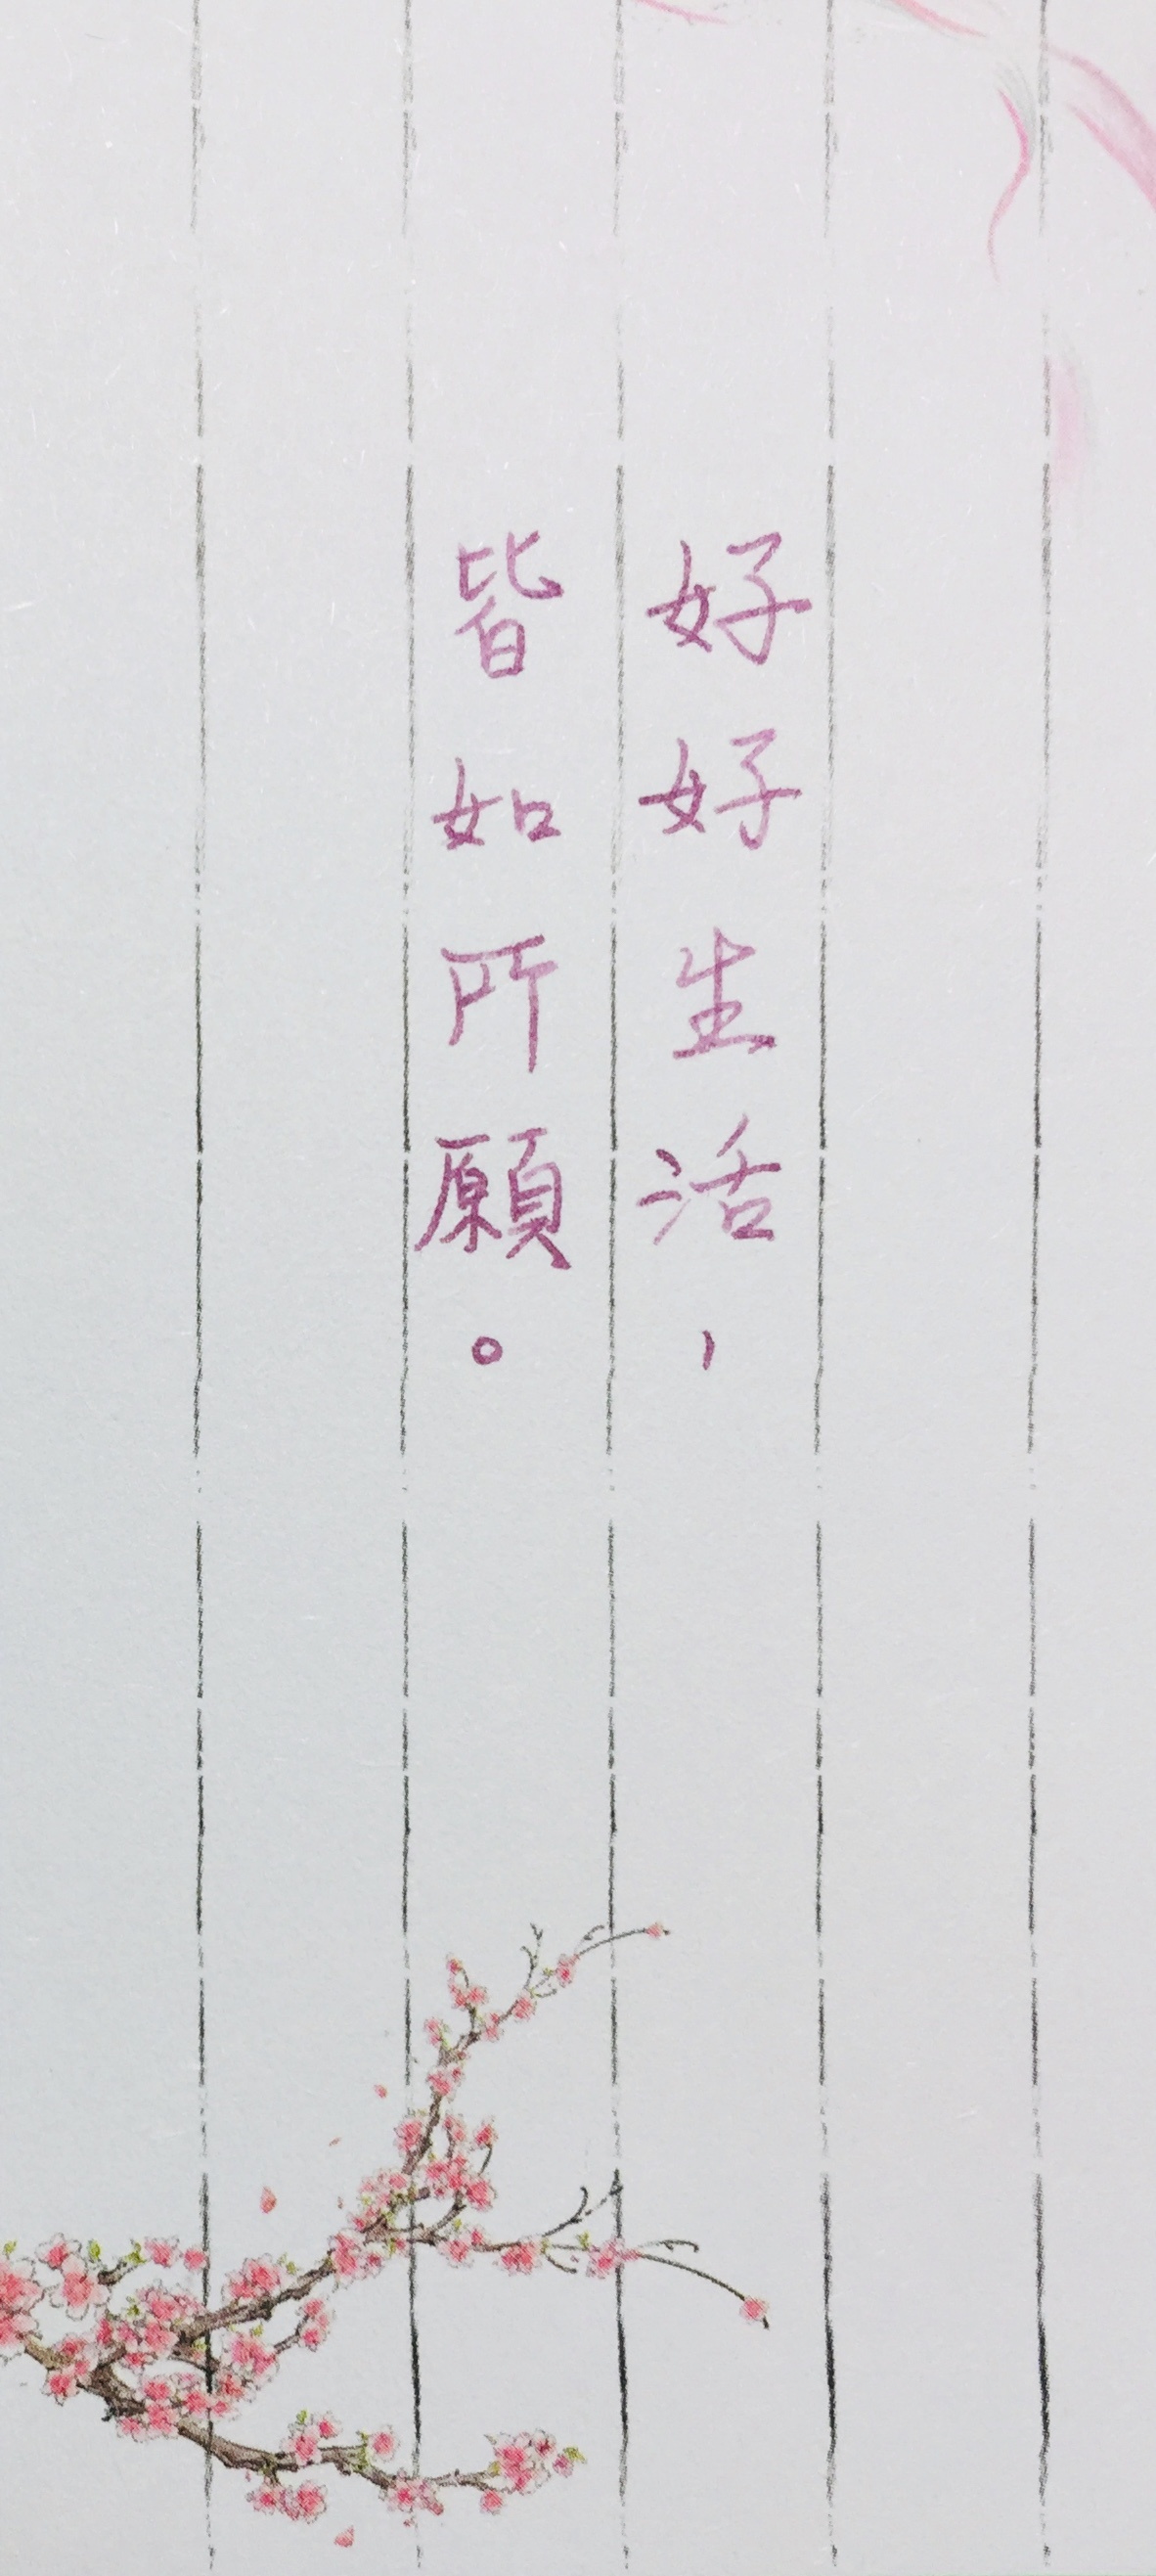 好好生活，
皆如所願。